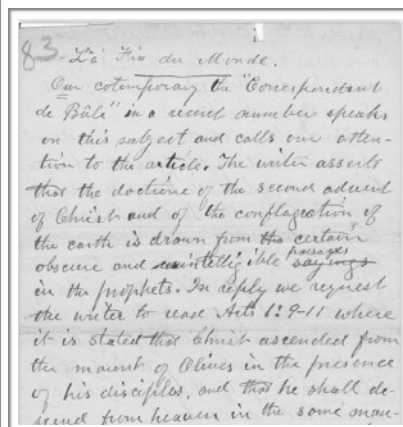 83. La Fin du Monde.
Our cotimporary the "Correspondant
de Bâle" in a recent number speaks
on this subject and calls our atten-
tion to the article. The writer asserts
that the doctrine of the second advent
of Christ and of the conflagration of
the earth is drawn from the certain
obscure and unintelligible sayings passages
in the prophets. In reply we request
the writer to read Acts 1:9-11 where
it is stated that Christ ascended from
the mount of Olives in the presence
of his disciples, and that he shall de-
scend from heaven in the same man-